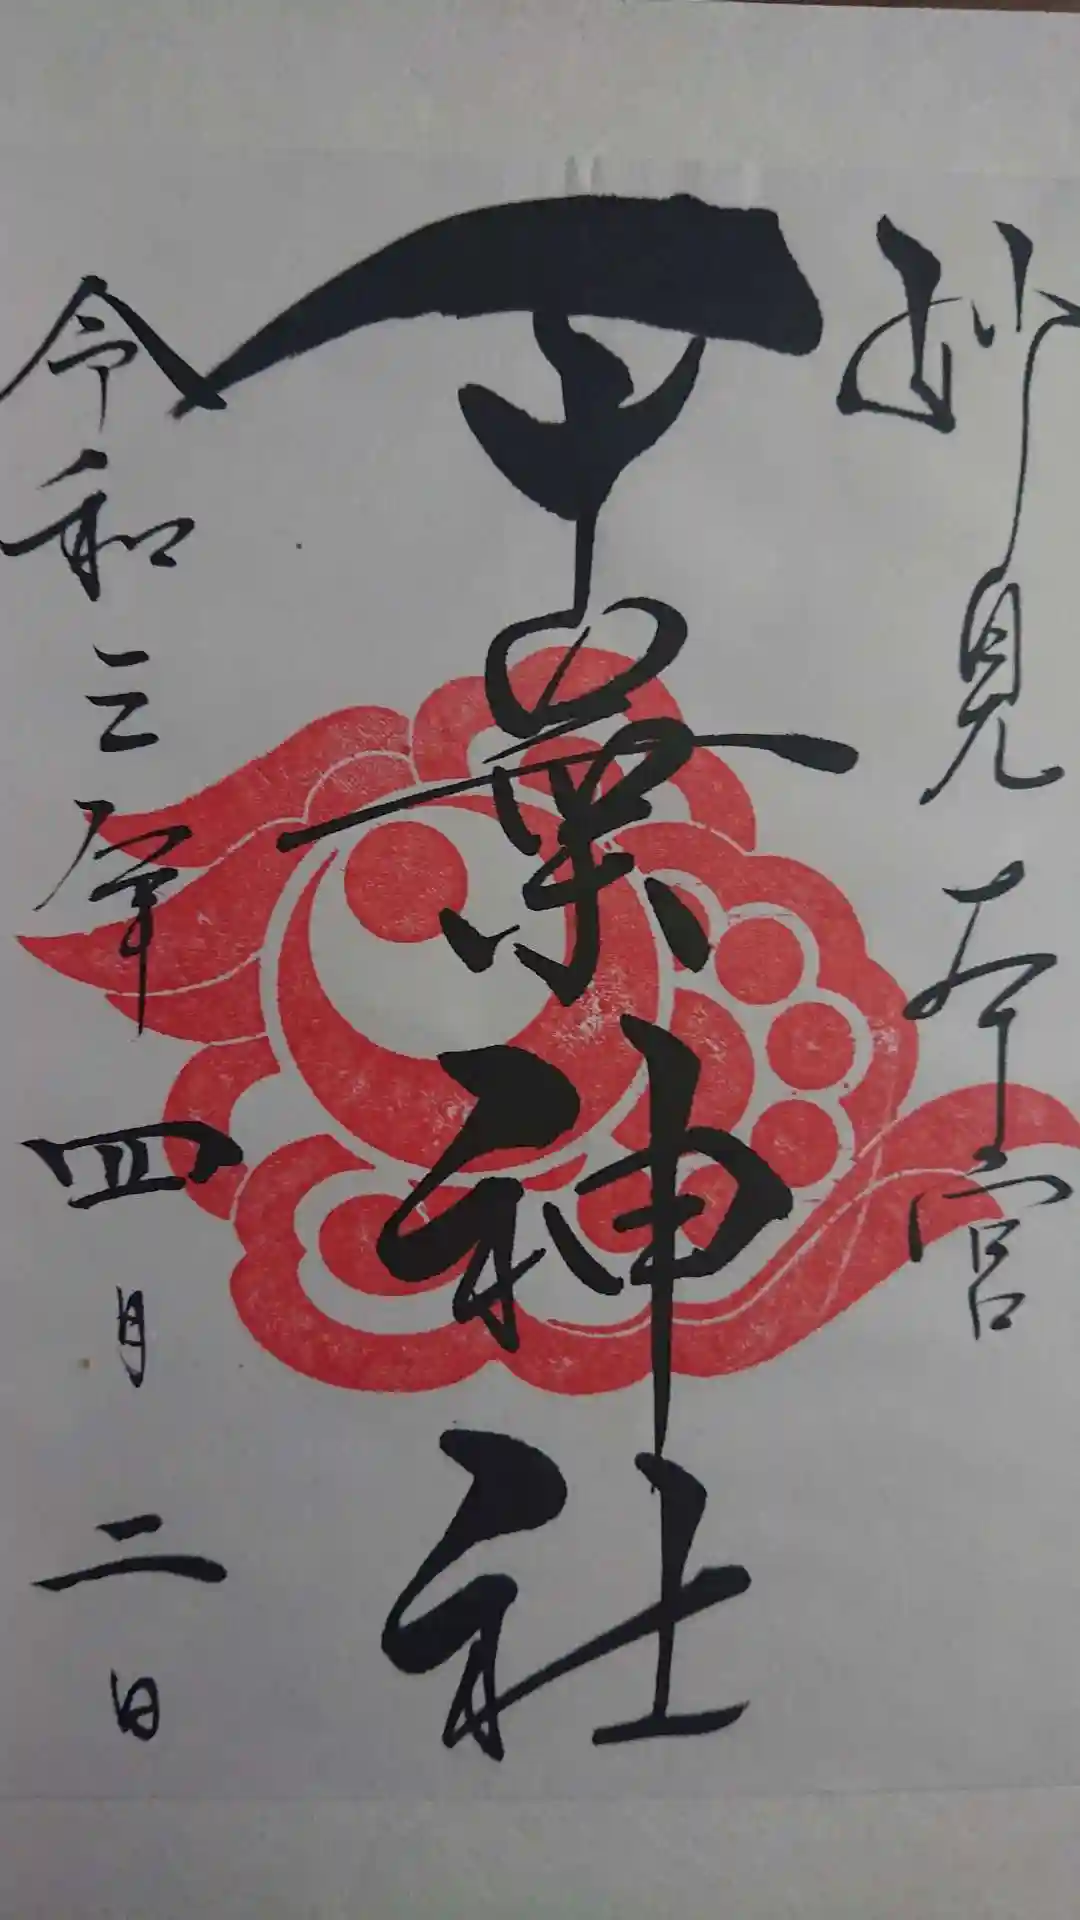 妙見本宮
千葉神社
令和三年四月二日